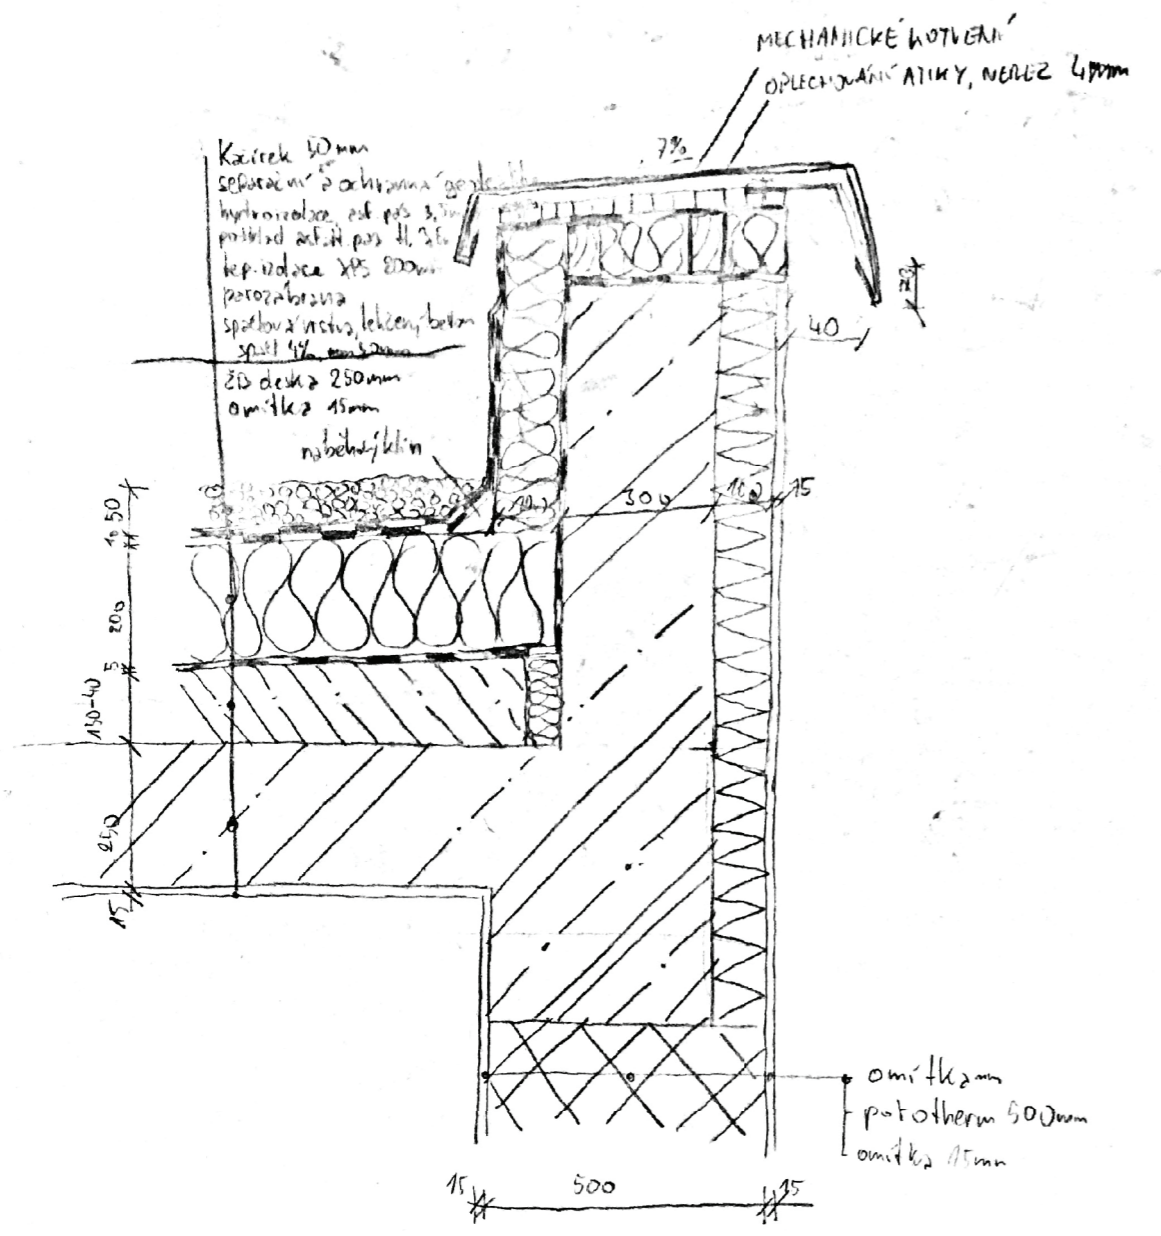 MECHANICKÉ KOTVENÍ
OPLECHOVÁNÍ ATIKY, NEREZ 4mm
7%
Kačírek 50mm
separační a ochranná geotextilie
hydroizolace, asf. pás
podklad asf. pás tl.
tep. izolace XPS 200mm
parozábrana
spádová vrstva, lehčený beton
spád 4%,
ŽB deska 250mm
omítka 15mm
náběhový klín
40
100
300
100
15
50
10
200
5
150-40
250
15
omítka
porotherm 500mm
omítka 15mm
15
500
15